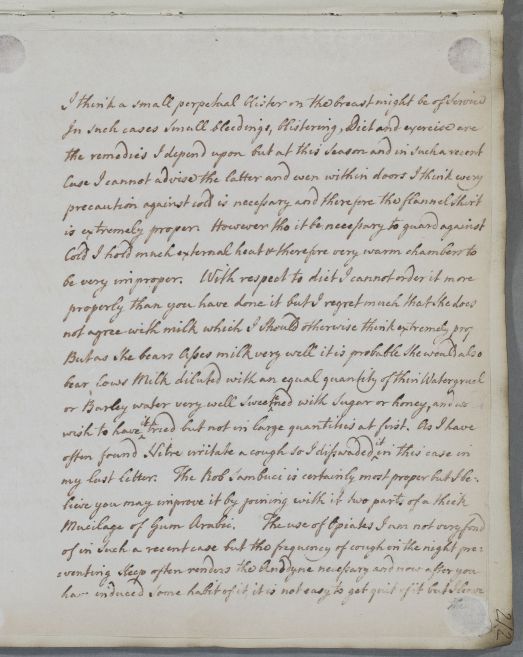 I think a small perpetual blister on the breast might be of Service
In such cases Small bleedings, blistering, Diet and exercise are
the remedies I depend upon but at this Season and in such a recent
Case I cannot advise the latter and even within doors I think every
precaution against cold is necessary and therefore the flannel Shirt
is extremely proper. However tho it be necessary to guard against
Cold I hold much external heat & therefore very warm chambers to
be very improper. With respect to diet I cannot order it more
properly than you have done it but I regret much that She does
not agree with milk which I Should otherwise think extremely pro
But as She bears Asses milk very well it is probable She would also
bear Cows Milk diluted with an equal quantity of thin Watergruel
or Barley water very well Sweetned with Sugar or honey, and
wish to have it tried but not in large quantities at first. As I have
often found Nitre irritate a cough So I disswaded it in this case in
my last letter. The Rob Sambuci is certainly most proper but I be-
lieve you may improve it by joining with it two parts of a thick
Mucilage of Gum Arabic. The use of Opiates I am not very fond
of in Such a recent case but the frequency of cough in the night pre-
venting Sleep often renders the Anodyne necessary and now after you
have induced Some habit of it it is not easy to get quit of it but
212